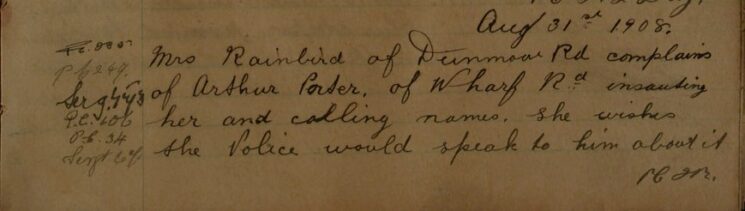 Aug 31st 1908.
Mrs Rainbird of Dunmow Rd complains
of Arthur Porter, of Wharf Rd insauting
her and calling names. She wishes
the Police would speak to him about it
P.C. 249.
Sergt
P.C. 406
P.C. 34
Sergt